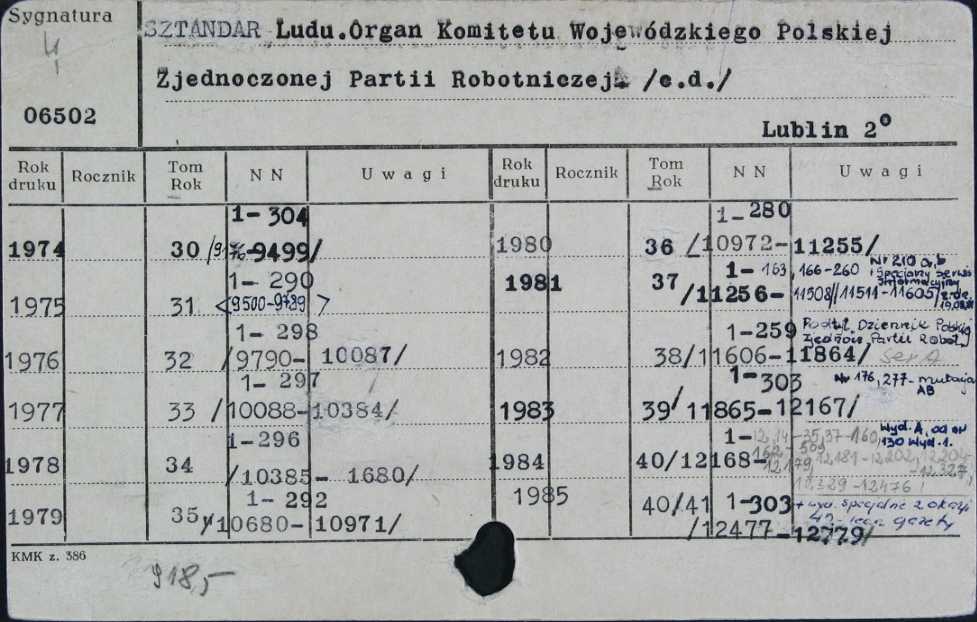 Sygnatura
4
06502
SZTANDAR Ludu.Organ Komitetu Wojewódzkiego Polskiej
Zjednoczonej Partii Robotniczej /c.d./
Lublin 2°
Rok druku Rocznik Tom Rok NN Uwagi Rok druku Rocznik Tom Rok NN Uwagi
1-304
1974 30 -9499/
1-290
1975 31 <9500-9789>
1-298
1976 32 /9790-10087/
1-297
1977 33 /10088-10384/
1-296
1978 34 /10385-1680/
1-292
1979 35 /10680-10971/
1-280
1980 36 /10972-11255/
1981 37 1-163, 166-260 Nr 210 a,b
i specjalny serwis
informacyjny
/11256-11508//11511-11605/
1-259 Podtyt. Dziennik Polskiej
Zjedn. Partii Robot.
1982 38/11606-11864/
1-303 Nr 176, 277-mutacja
AB
1983 39/11865-12167/
1- 12,14-35,37-160, Wyd. A, od nr
130 Wyd. 1.
162-309
1984 40/12168-12179, 12181-12202, 12204-12327,
12329-12476
1985 40/41 1-303 + wyd. specjalne z okazji
gazety
/12477-12779/
KMK z. 386
918,-